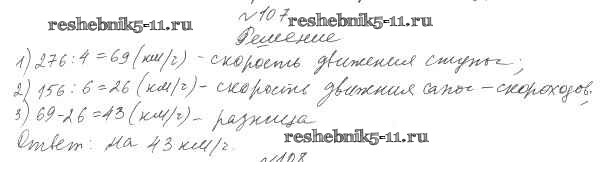 №107
reshebnik5-11.ru reshebnik5-11.ru
Решение
1) 276 : 4 = 69 (км/ч) - скорость движения ступы;
2) 156 : 6 = 26 (км/ч) - скорость движния сапог - скороходов;
3) 69 - 26 = 43 (км/ч) - разница
reshebnik5-11.ru
Ответ: на 43 км/ч.
№108